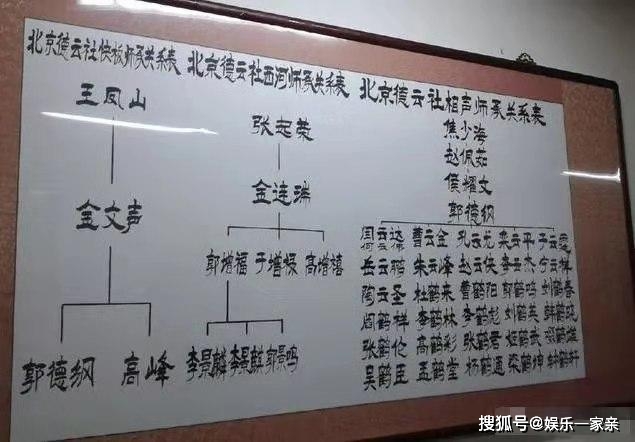 北京德云社快板师承关系表
王凤山
金文声
郭德纲 高峰
北京德云社西河师承关系表
张志荣
金连瑞
郭增福 于增禄 高增禧
李景麟 郭景鸣
北京德云社相声师承关系表
焦少海
赵佩茹
侯耀文
郭德纲
云达 曹云金 孔云龙 栾云平 于云霆
岳云鹏 朱云峰 赵云侠 李云杰 宁云祥
陶云圣 杜鹤来 曹鹤阳 郭鹤鸣 刘鹤春
阎鹤祥 李鹤林 李鹤彪 刘鹤英 韩鹤晓
张鹤伦 高鹤彩 张鹤君 姬鹤武
吴鹤臣 孟鹤堂 杨鹤通 梁鹤坤
搜狐号@娱乐一家亲